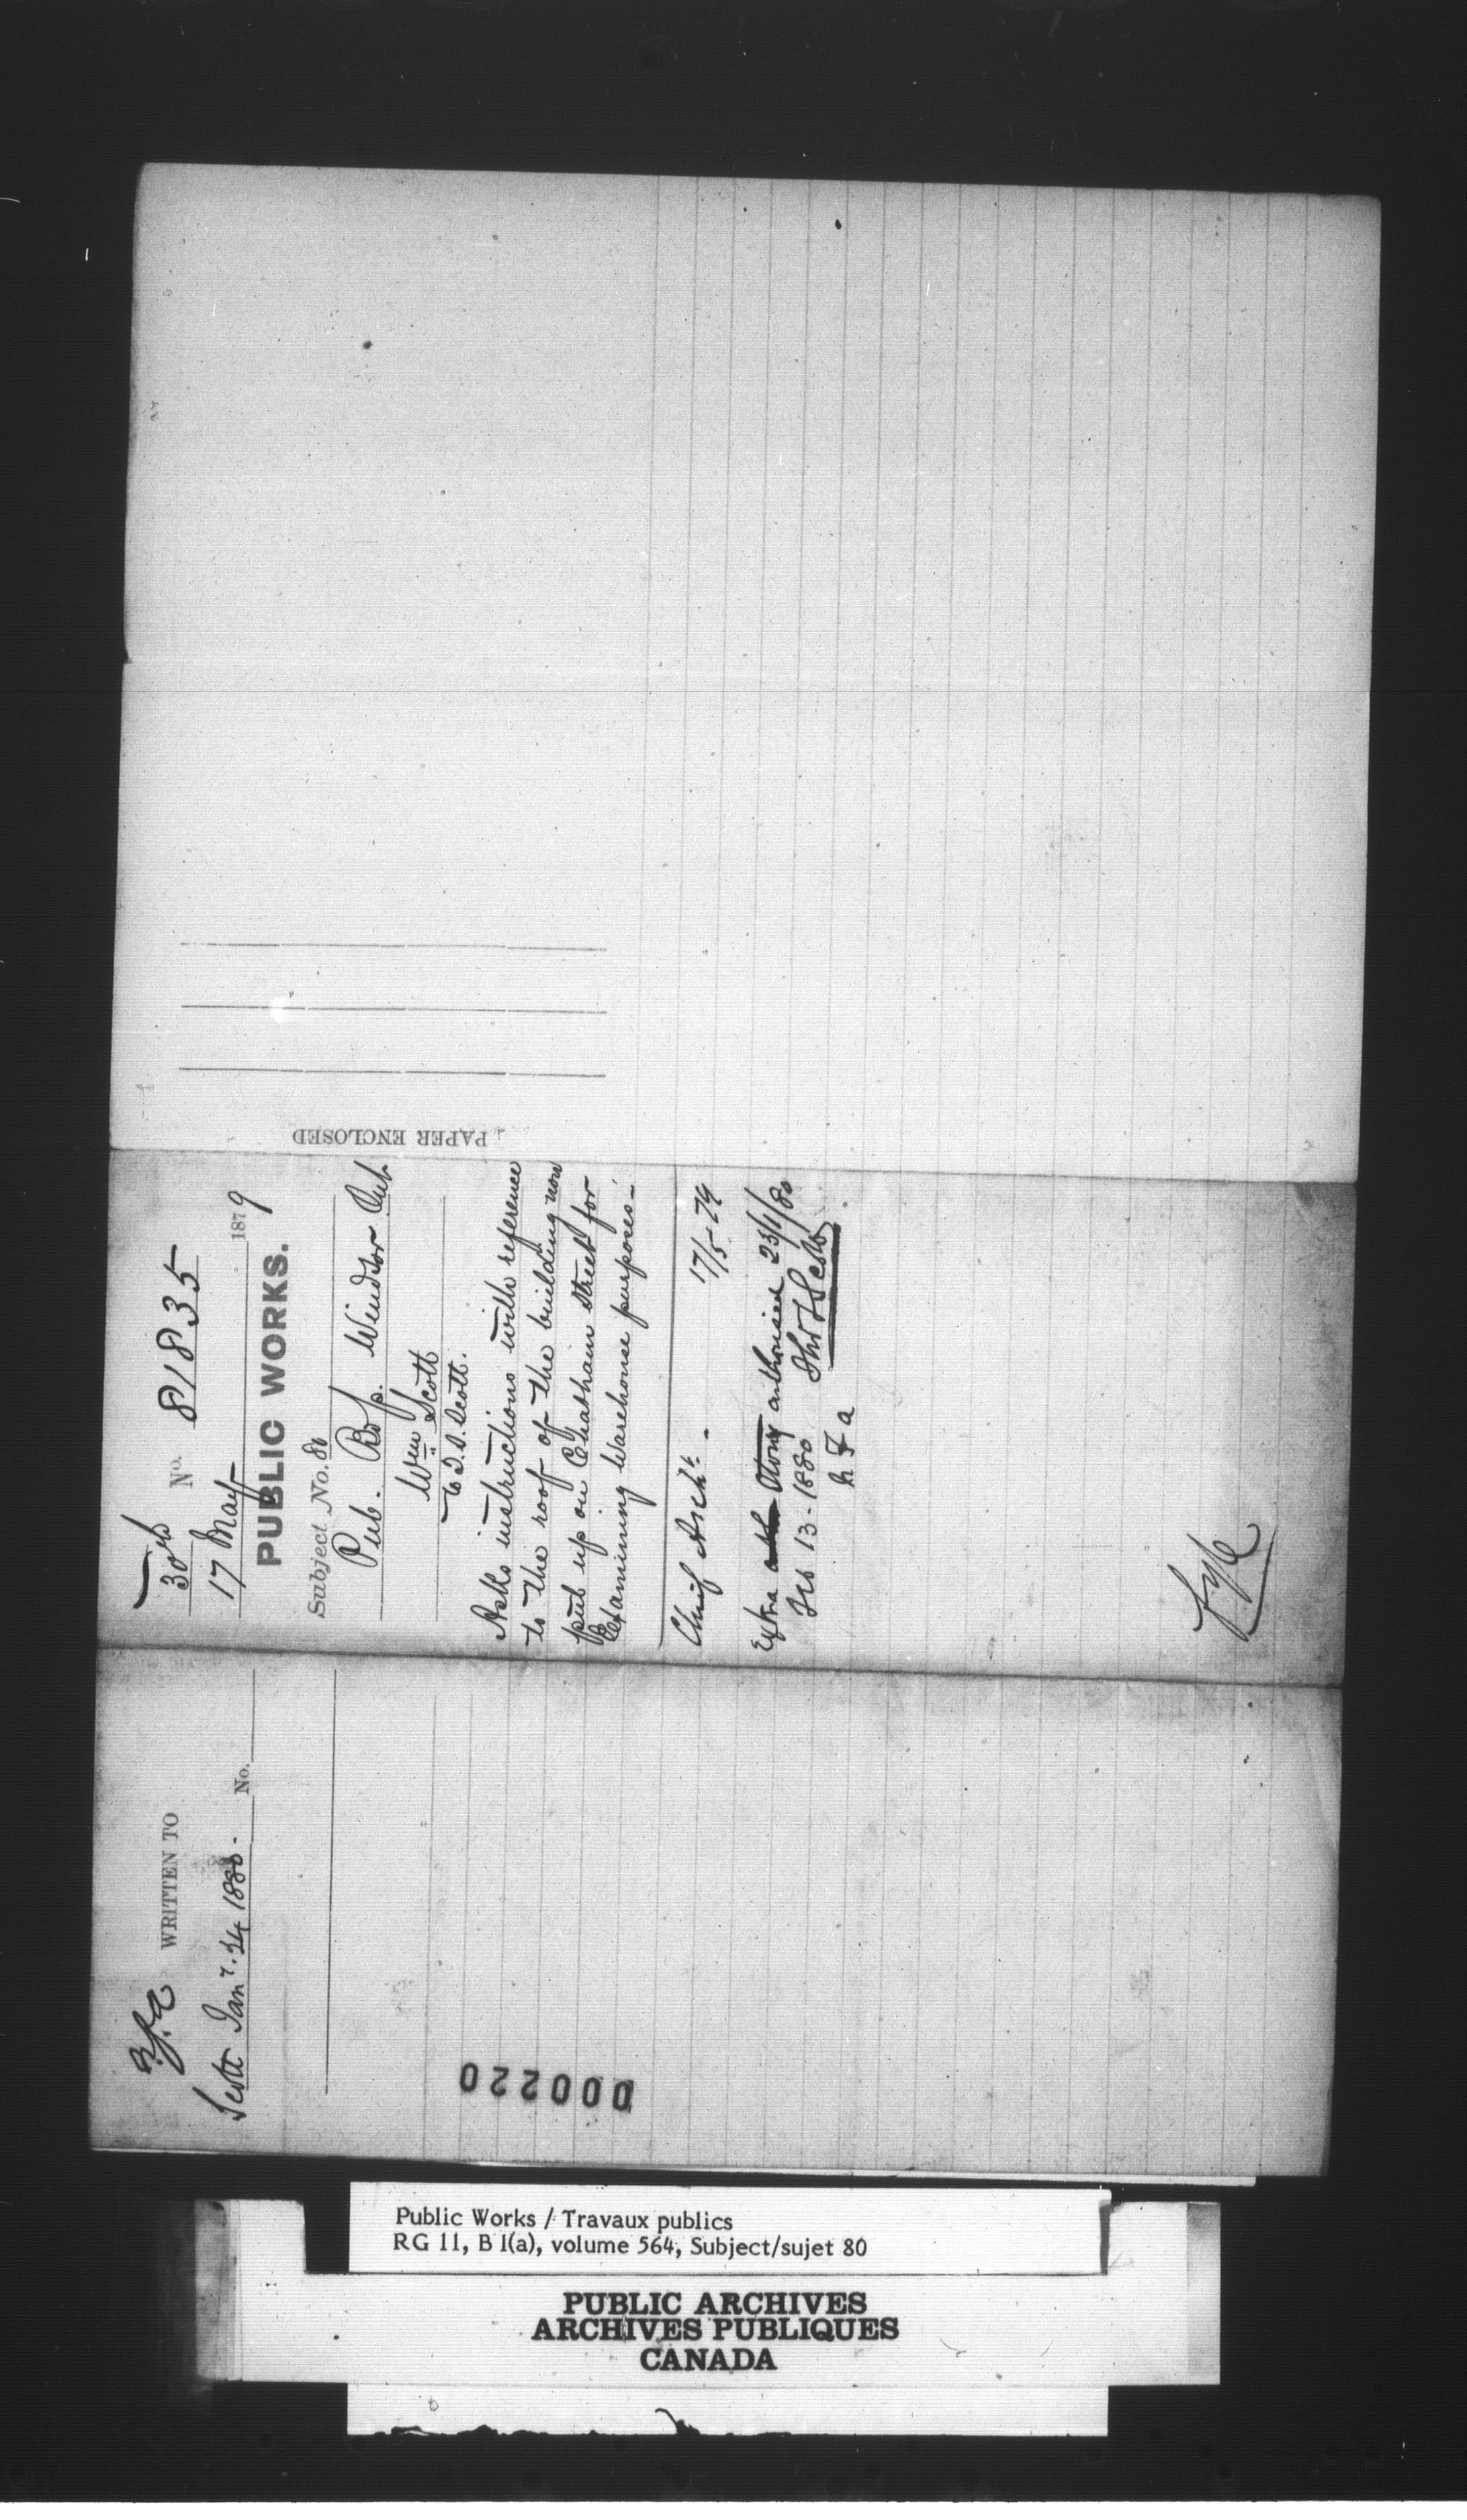 PAPER ENCLOSED
30th No. 81835
17 May 1879
PUBLIC WORKS.
Subject No. 80
Pub. Bdgs. Windsor Ont
Wm Scott
to T.S. Scott.
Asks instructions with reference
to the roof of the building now
put up on Chatham Street for
Examining Warehouse purposes-
Chief Archt. - 17/5-79
Extra authorised 23/1/80
Feb 13-1880 Thos S Scott
WRITTEN TO
Scott Jany. 24 1880. No.
000220
Public Works / Travaux publics
RG 11, B 1(a), volume 564, Subject/sujet 80
PUBLIC ARCHIVES
ARCHIVES PUBLIQUES
CANADA